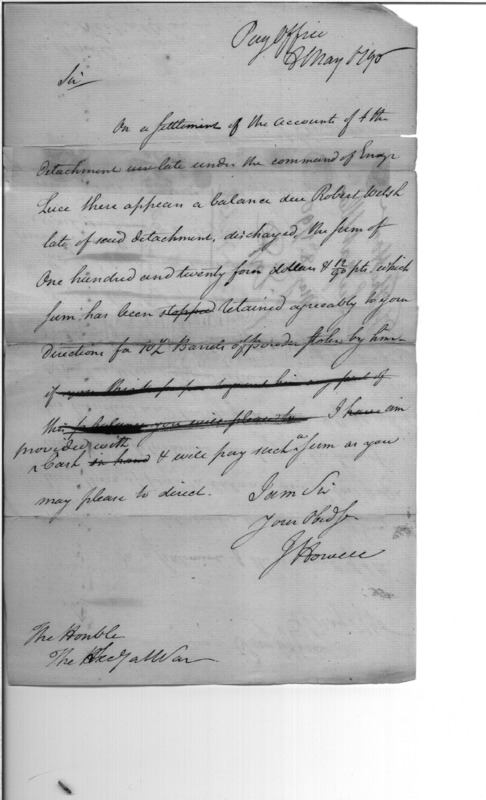 Pay Office
8 May 1790
Sir
On a settlement of the accounts of the
Detachment late under the command of Ensgn
Luce there appears a balance due Robert Welsh
late of said detachment, discharged, the sum of
One hundred and twenty four dollars & 12/90 pts. which
sum has been stopped retained agreeably to your
Directions for 10½ Barrels of Powder stolen by him
if you think proper
this balance you will please I have am
provided with
Cash in hand & will pay such a sum as you
may please to direct.
I am Sir
Your Obed Sr
J Howell
The Honble
The Secy at War